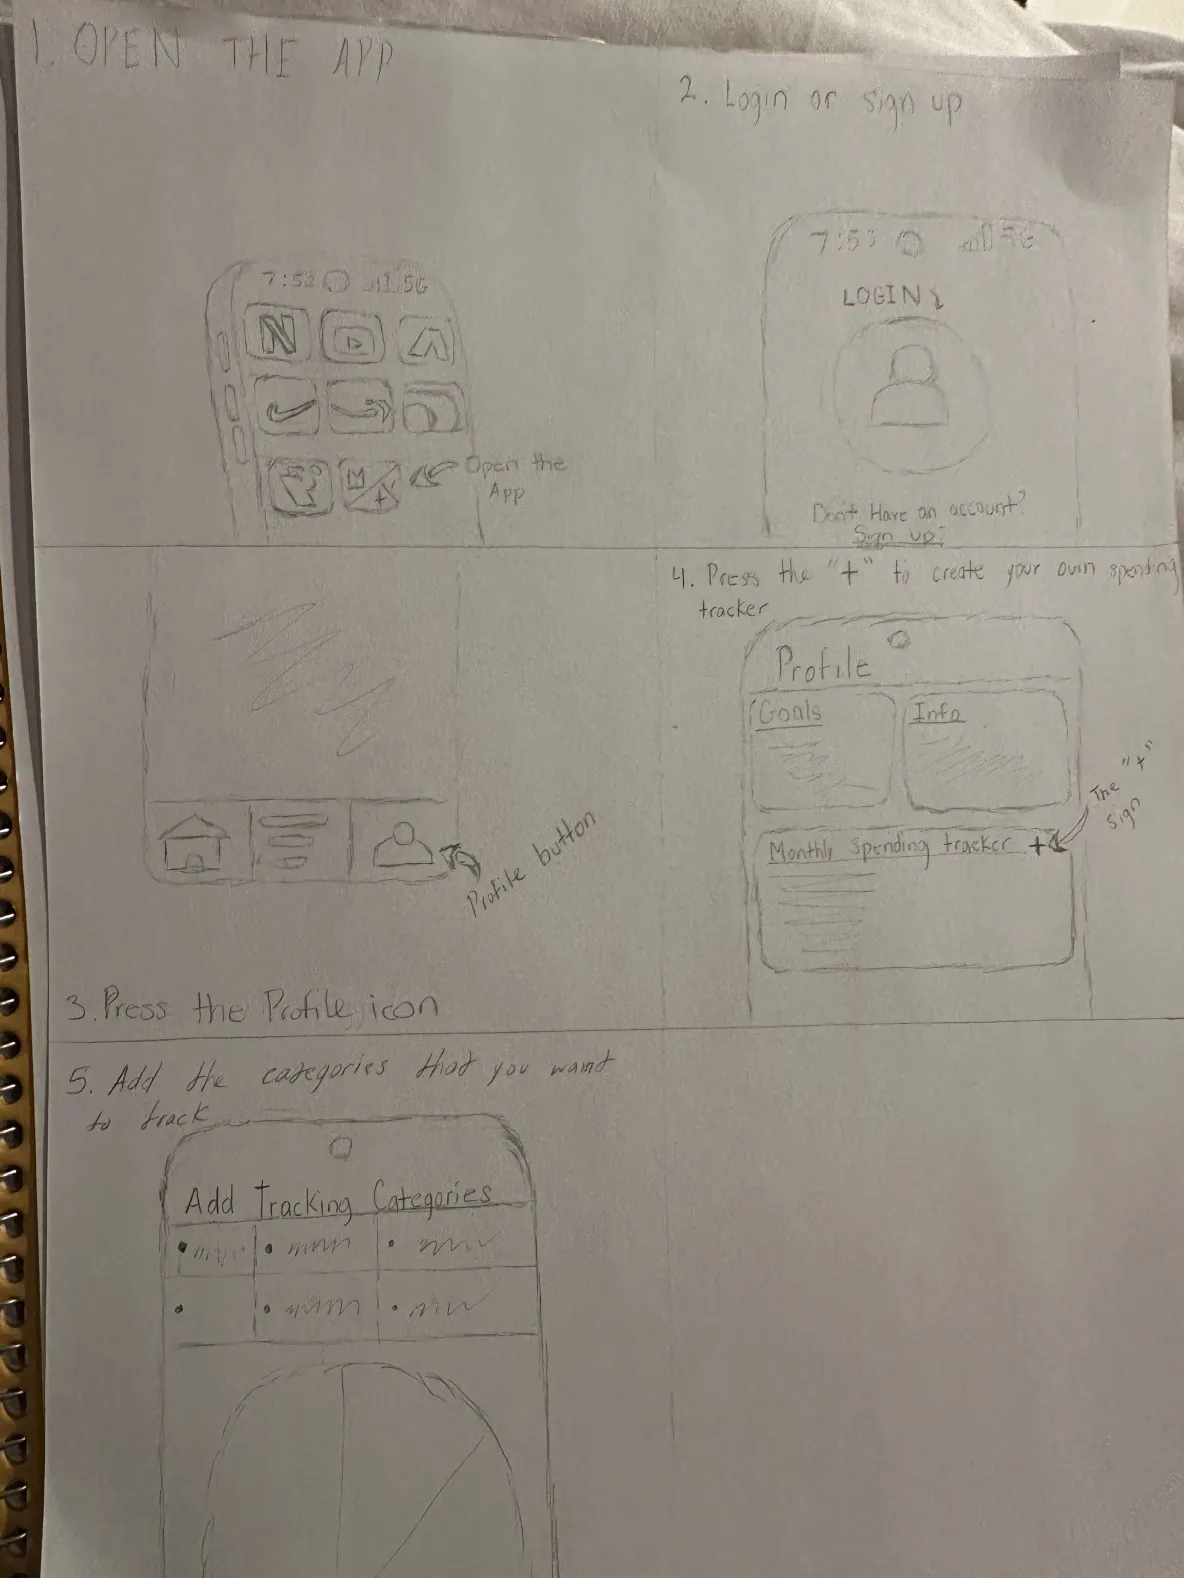 1. OPEN THE APP
7:52 5G
N
M
+
Open the
App
2. Login or sign up
7:53 5G
LOGIN
Don't Have an account?
Sign up!
Profile button
3. Press the Profile icon
4. Press the "+" to create your own spending
tracker
Profile
Goals
Info
The "+"
Sign
Monthly spending tracker +
5. Add the categories that you want
to track
Add Tracking Categories